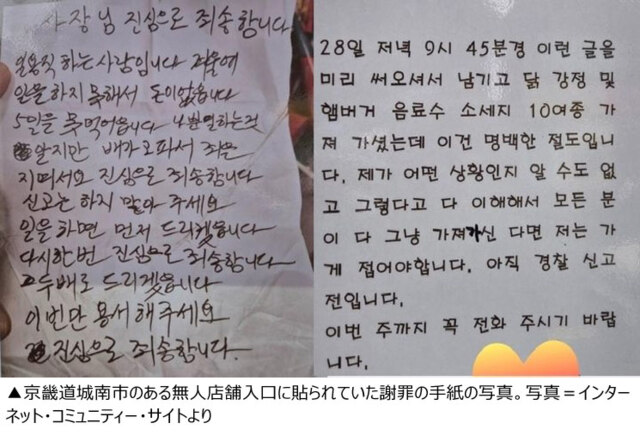 사장님 진심으로 죄송합니다
일용직 하는사람입니다 겨울에
일을 하지 못해서 돈이없습니다
5일을 못먹어읍니다 나쁜일하는것
알지만 배가고파서 죄를
지며서요 진심으로 죄송합니다
신고는 하지 말아 주세요
일을하면 먼저 드리겠읍니다
다시한번 진심으로 죄송합니다
두배로 드리겠읍니다
이번만 용서해주세요
진심으로 죄송합니다.
28일 저녁 9시 45분경 이런 글을
미리 써오셔서 남기고 닭 강정 및
햄버거 음료수 소세지 10여종 가
져 가셨는데 이건 명백한 절도입니
다. 제가 어떤 상황인지 알 수도 없
고 그렇다고 다 이해해서 모든 분
이 다 그냥 가져가신 다면 저는 가
게 접어야합니다. 아직 경찰 신고
전입니다.
이번 주까지 꼭 전화 주시기 바랍
니다.
▲京畿道城南市のある無人店舗入口に貼られていた謝罪の手紙の写真。写真＝インター
ネット・コミュニティー・サイトより